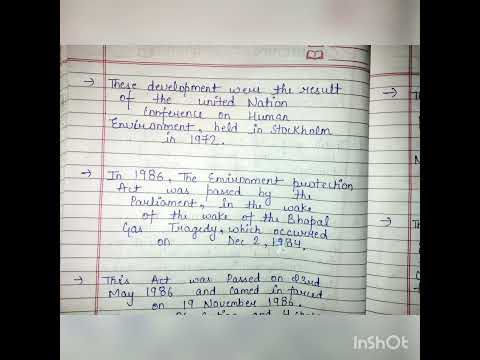 → These development were the result
of the united Nation
Conference on Human
Environment, held in Stockholm
in 1972.
→ In 1986, The Environment protection
Act was passed by the
Parliament, in the wake
of the wake of the Bhopal
Gas Tragedy, which occurred
on Dec 2, 1984.
→ This Act was Passed on 23rd
May 1986 and camed in forced
on 19 November 1986.
InShOt